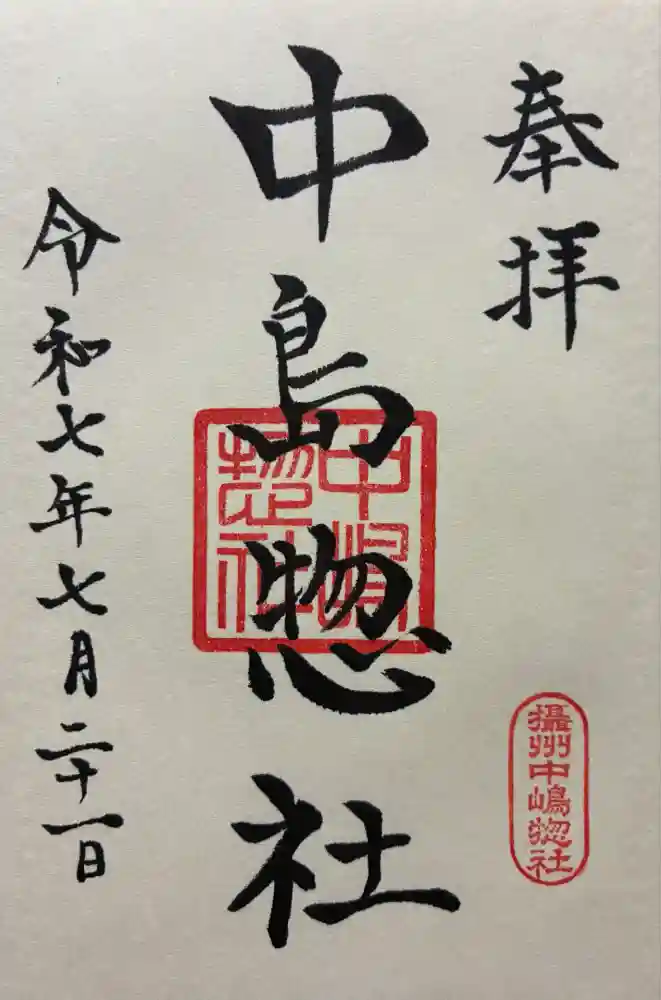 奉拝
中島惣社
中嶋惣社
摂州中嶋惣社
令和七年七月二十一日